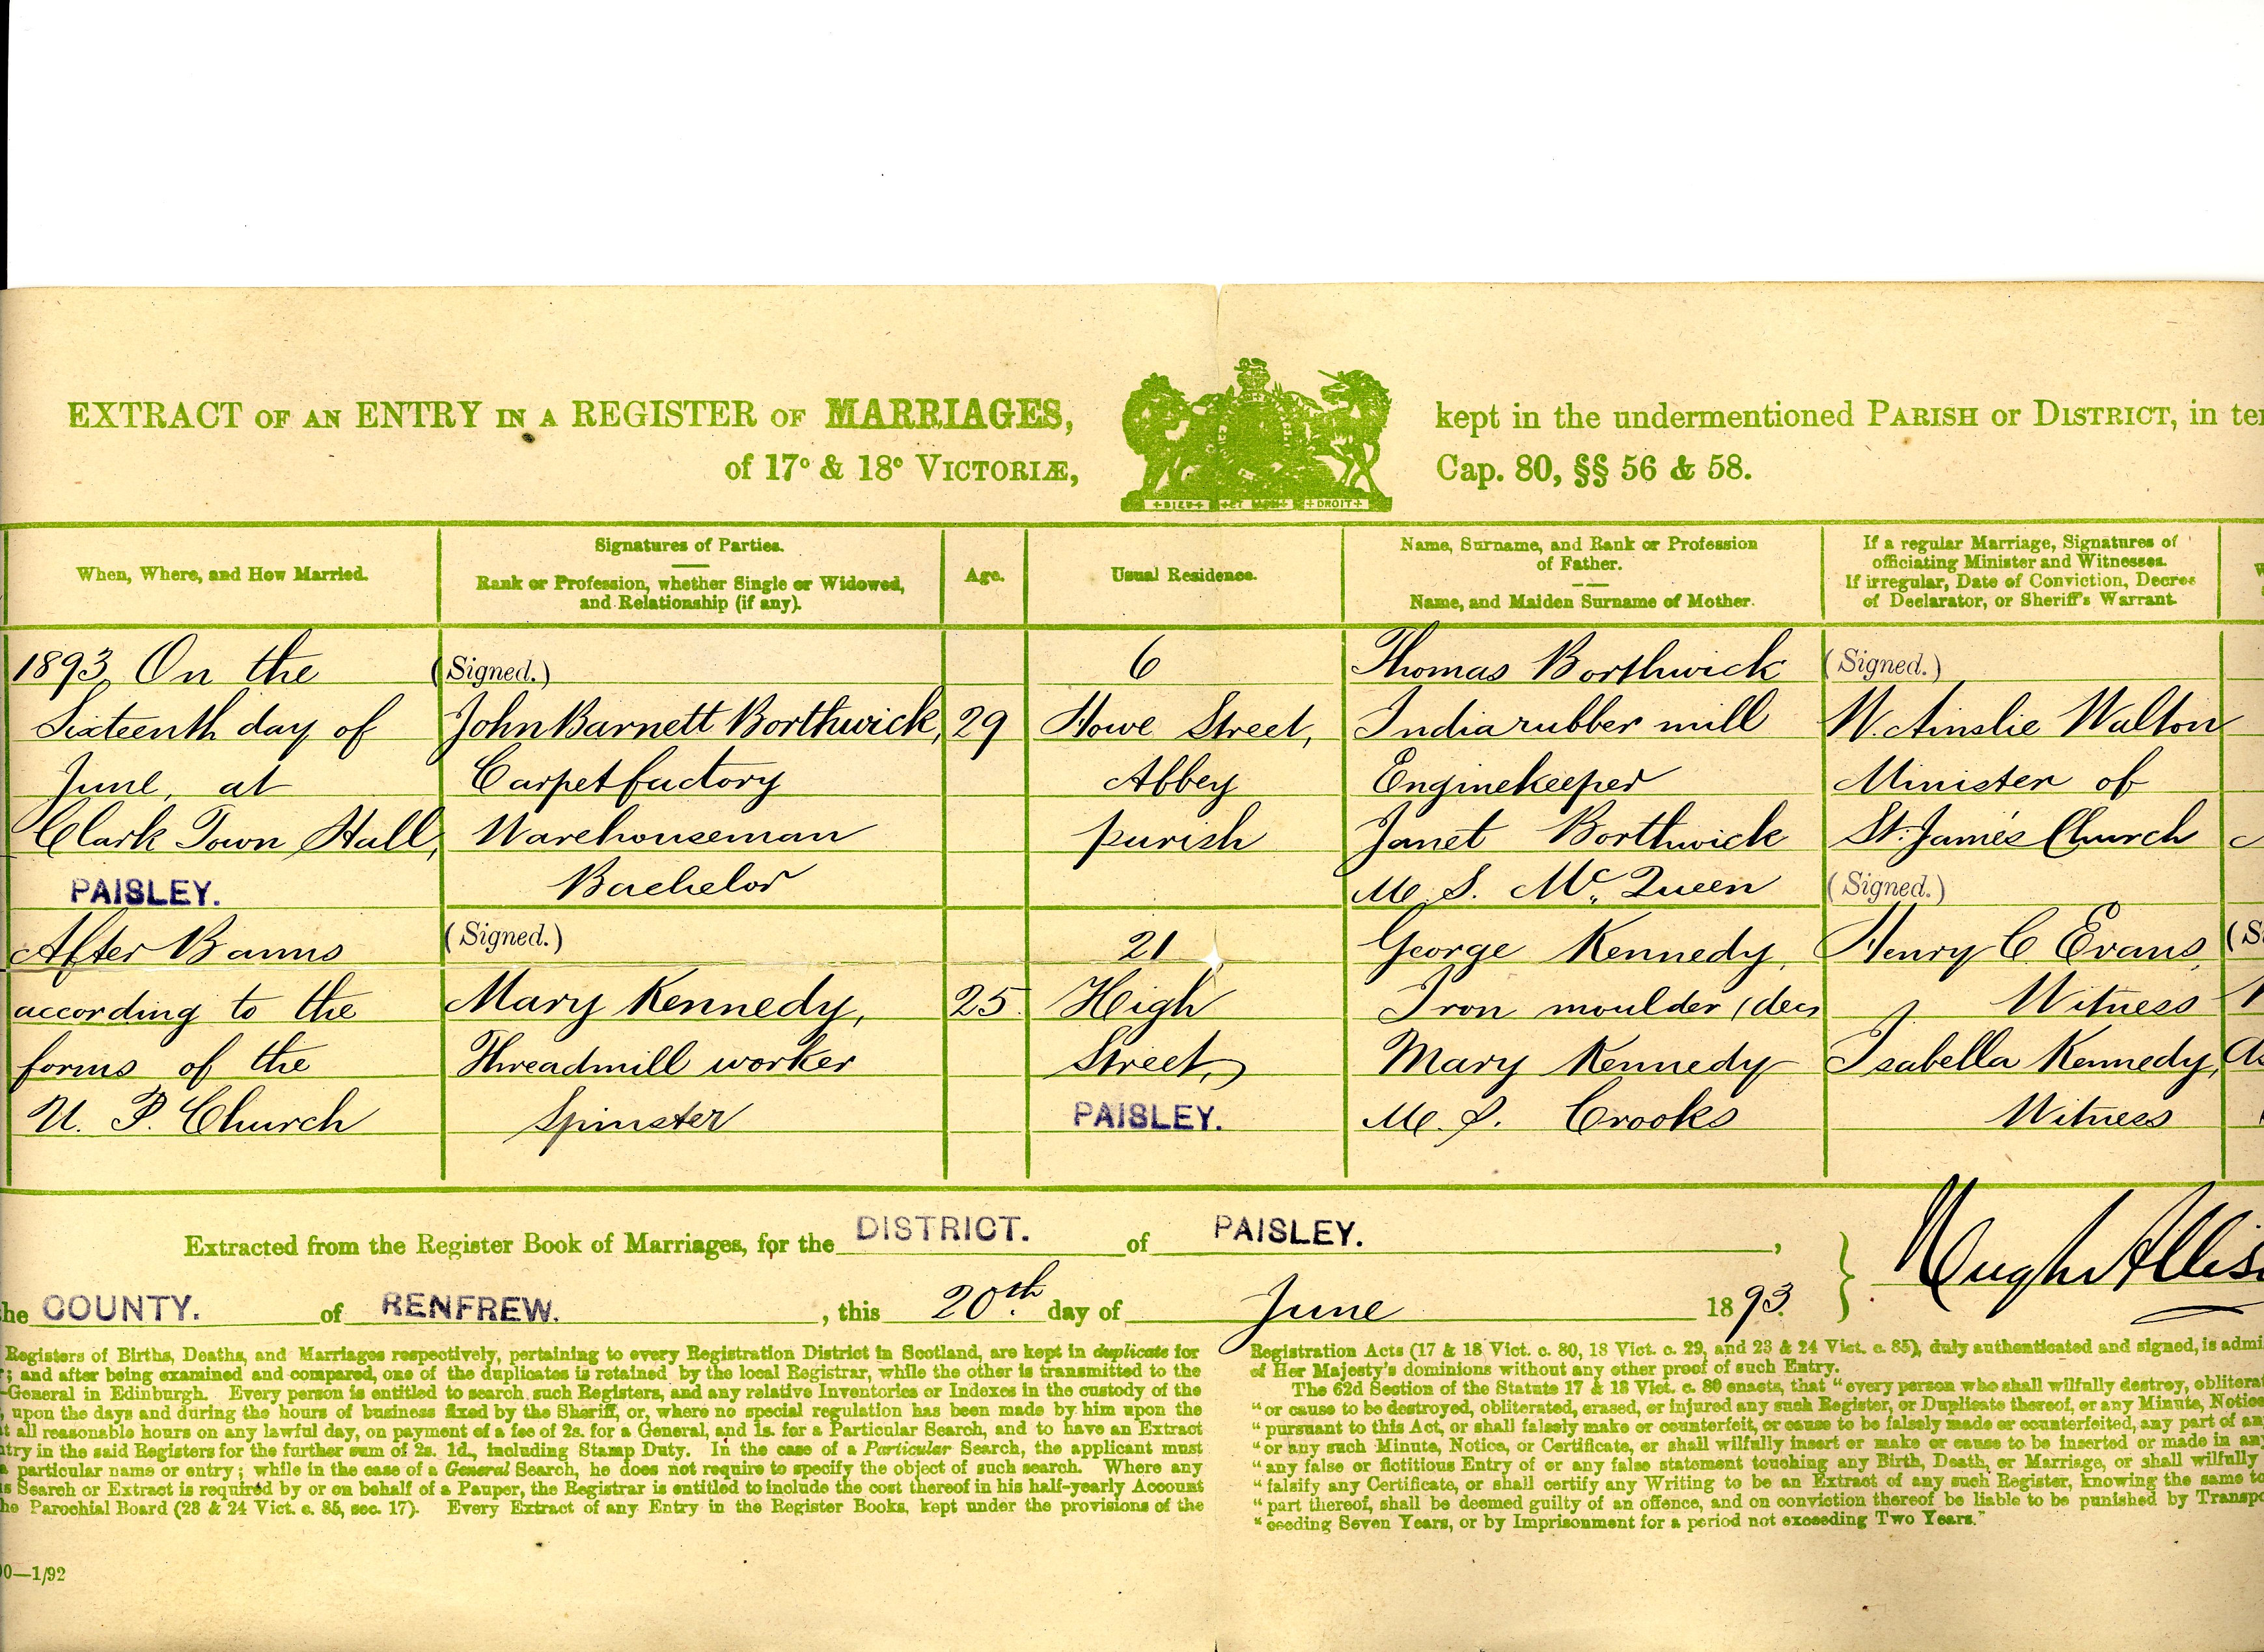 EXTRACT OF AN ENTRY IN A REGISTER OF MARRIAGES, kept in the undermentioned PARISH OR DISTRICT, in
of 17° & 18° VICTORIÆ, Cap. 80, §§ 56 & 58.
DIEU ET MON DROIT
When, Where, and How Married.
Signatures of Parties.
Rank or Profession, whether Single or Widowed,
and Relationship (if any).
Age.
Usual Residence.
Name, Surname, and Rank or Profession
of Father.
Name, and Maiden Surname of Mother.
If a regular Marriage, Signatures of
officiating Minister and Witnesses.
If irregular, Date of Conviction, Decree
of Declarator, or Sheriff's Warrant.
1893, On the
Sixteenth day of
June, at
Clark Town Hall,
PAISLEY.
After Banns
according to the
forms of the
U. P. Church
(Signed.)
John Barnett Borthwick,
Carpet factory
Warehouseman
Bachelor
(Signed.)
Mary Kennedy,
Threadmill worker
Spinster
29
25
6
Howe Street,
Abbey
parish
21
High
Street,
PAISLEY.
Thomas Borthwick
Indiarubber mill
Enginekeeper
Janet Borthwick
M. S. McQueen
George Kennedy,
Iron moulder (decd
Mary Kennedy
M. S. Crooks
(Signed.)
W. Ainslie Walton
Minister of
St. James Church
(Signed.)
Henry C Evans,
Witness
Isabella Kennedy,
Witness
Extracted from the Register Book of Marriages, for the DISTRICT. of PAISLEY.,
COUNTY. of RENFREW., this 20th. day of June 1893.
Hugh
Registers of Births, Deaths, and Marriages respectively, pertaining to every Registration District in Scotland, are kept in duplicate for
; and after being examined and compared, one of the duplicates is retained by the local Registrar, while the other is transmitted to the
-General in Edinburgh. Every person is entitled to search such Registers, and any relative Inventories or Indexes in the custody of the
, upon the days and during the hours of business fixed by the Sheriff, or, where no special regulation has been made by him upon the
all reasonable hours on any lawful day, on payment of a fee of 2s. for a General, and 1s. for a Particular Search, and to have an Extract
in the said Registers for the further sum of 2s. 1d., including Stamp Duty. In the case of a Particular Search, the applicant must
particular name or entry; while in the case of a General Search, he does not require to specify the object of such search. Where any
Search or Extract is required by or on behalf of a Pauper, the Registrar is entitled to include the cost thereof in his half-yearly Account
Parochial Board (23 & 24 Vict. c. 85, sec. 17). Every Extract of any Entry in the Register Books, kept under the provisions of the
Registration Acts (17 & 18 Vict. c. 80, 18 Vict. c. 29, and 23 & 24 Vict. c. 85), duly authenticated and signed, is
of Her Majesty's dominions without any other proof of such Entry.
The 62d Section of the Statute 17 & 18 Vict. c. 80 enacts, that "every person who shall wilfully destroy,
"or cause to be destroyed, obliterated, erased, or injured any such Register, or Duplicate thereof, or any Minute, Notice
"pursuant to this Act, or shall falsely make or counterfeit, or cause to be falsely made or counterfeited, any part of
"or any such Minute, Notice, or Certificate, or shall wilfully insert or make or cause to be inserted or made in
"any false or fictitious Entry of or any false statement touching any Birth, Death, or Marriage, or shall wilfully
"falsify any Certificate, or shall certify any Writing to be an Extract of any such Register, knowing the same
"part thereof, shall be deemed guilty of an offence, and on conviction thereof be liable to be punished by
"ceeding Seven Years, or by Imprisonment for a period not exceeding Two Years."
0—1/92